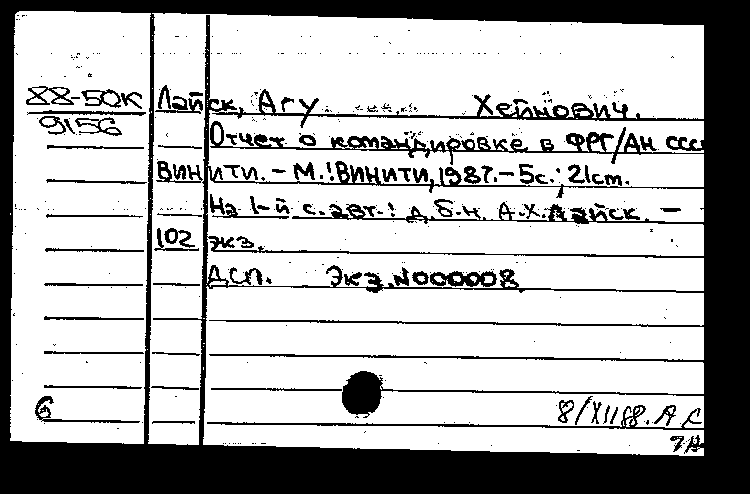 88-50К Лайск, Агу Хейнович.
9156 Отчет о командировке в ФРГ/АН ССС
ВИНИТИ. - М.: ВИНИТИ, 1987. - 5с.; 21cm.
На 1-й с. авт.: д.б.н. А.Х. Лайск. -
102 экз.
ДСП. Экз. N000008.
6 8/XII88. А С